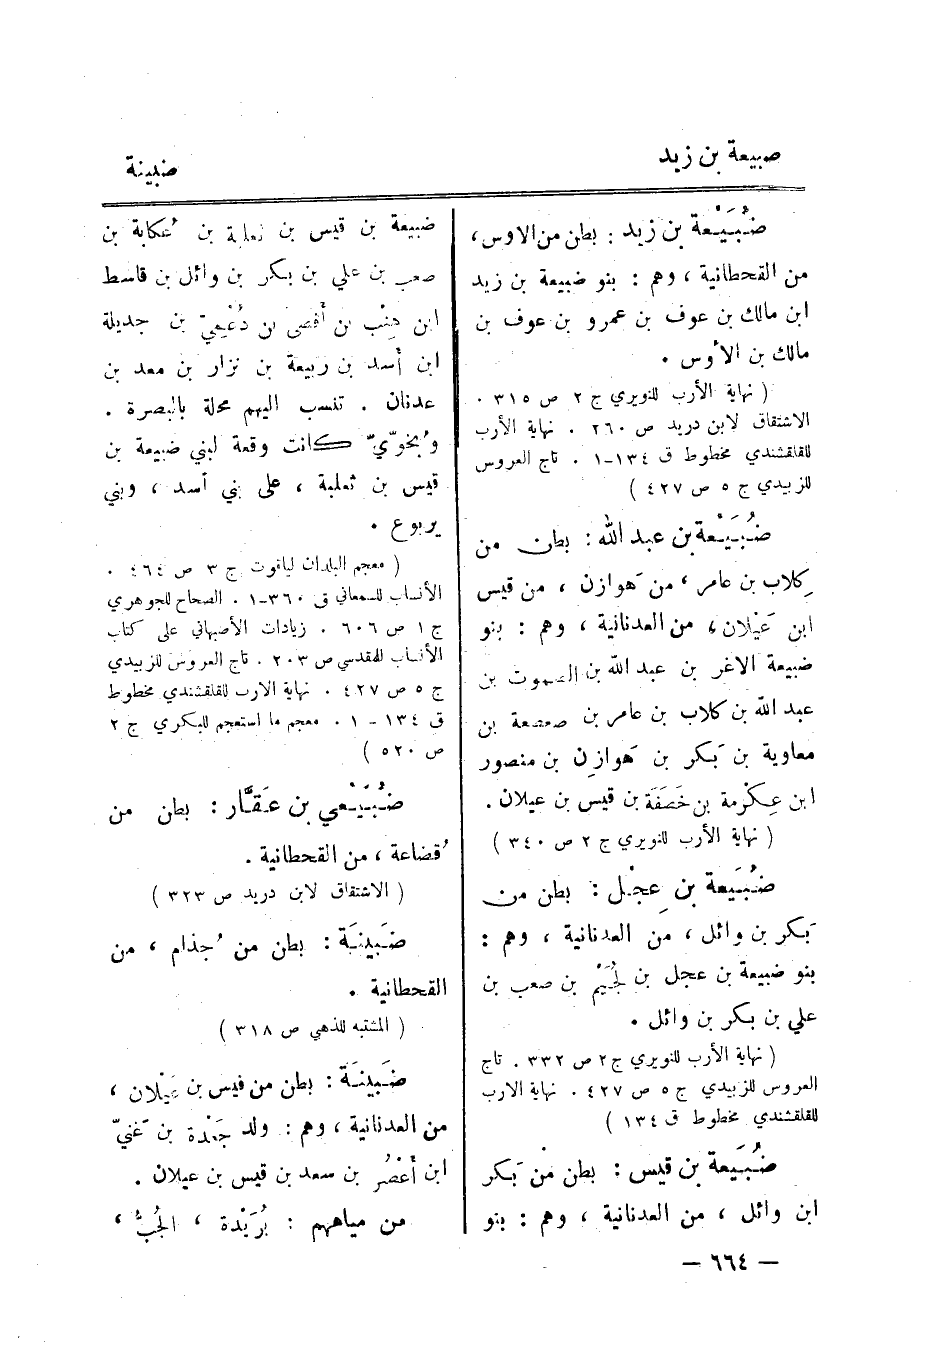 ضبيعة بن زيد
ضبينة
ضُبَيْعة بن زيد : بطن من الاوس ،
من القحطانية ، وهم : بنو ضبيعة بن زيد
ابن مالك بن عوف بن عمرو بن عوف بن
مالك بن الأوس .
( نهاية الأرب للنويري ج ٢ ص ٣١٥ .
الاشتقاق لابن دريد ص ٢٦٠ . نهاية الأرب
للقلقشندي مخطوط ق ١٣٤-١ . تاج العروس
للزبيدي ج ٥ ص ٤٢٧ )
ضُبَيْعة بن عبد الله : بطن من
كِلاب بن عامر ، من هَوازن ، من قيس
ابن عَيْلان ، من العدنانية ، وهم : بنو
ضبيعة الاغر بن عبد الله بن الصموت بن
عبد الله بن كلاب بن عامر بن صعصعة بن
معاوية بن بَكر بن هَوازِن بن منصور
ابن عِكْرمة بن خَصَفَة بن قيس بن عيلان .
( نهاية الأرب للنويري ج ٢ ص ٣٤٠ )
ضُبَيعة بن عِجْل : بطن من
بَكر بن وائل ، من العدنانية ، وهم :
بنو ضبيعة بن عجل بن لُجَيْم بن صعب بن
علي بن بكر بن وائل .
( نهاية الأرب للنويري ج ٢ ص ٣٣٢ . تاج
العروس للزبيدي ج ٥ ص ٤٢٧ . نهاية الارب
للقلقشندي مخطوط ق ١٣٤ )
ضُبَيعة بن قيس : بطن من بَكر
ابن وائل ، من العدنانية ، وهم : بنو
ضبيعة بن قيس بن ثعلبة بن عُكابة بن
صعب بن علي بن بكر بن وائل بن قاسط
ابن هِنْب بن أَفصى بن دُعْمِيّ بن جديلة
ابن أَسد بن ربيعة بن نزار بن معد بن
عدنان . تنسب اليهم محلة بالبصرة .
وبخُوَيّ كانت وقعة لبني ضبيعة بن
قيس بن ثعلبة ، على بني أسد ، وبني
يربوع .
( معجم البلدان لياقوت ج ٣ ص ٤٦٤ .
الأنساب للسمعاني ق ٣٦٠-١ . الصحاح للجوهري
ج ١ ص ٦٠٦ . زيادات الأصبهاني على كتاب
الأنساب للمقدسي ص ٢٠٣ . تاج العروس للزبيدي
ج ٥ ص ٤٢٧ . نهاية الارب للقلقشندي مخطوط
ق ١٣٤ - ١ . معجم ما استعجم للبكري ج ٢
ص ٥٢٠ )
ضُبَيْعي بن عَقَّار : بطن من
قُضاعة ، من القحطانية .
( الاشتقاق لابن دريد ص ٣٢٣ )
ضَبِينَة : بطن من جُذام ، من
القحطانية .
( المشتبه للذهبي ص ٣١٨ )
ضَبِينَة : بطن من قيس بن عَيْلان ،
من العدنانية ، وهم : ولد جَعْدة بن غَنيّ
ابن أَعْصُر بن سعد بن قيس بن عيلان .
من مياههم : بُرَيْدة ، الجُبُّ ،
— ٦٦٤ —